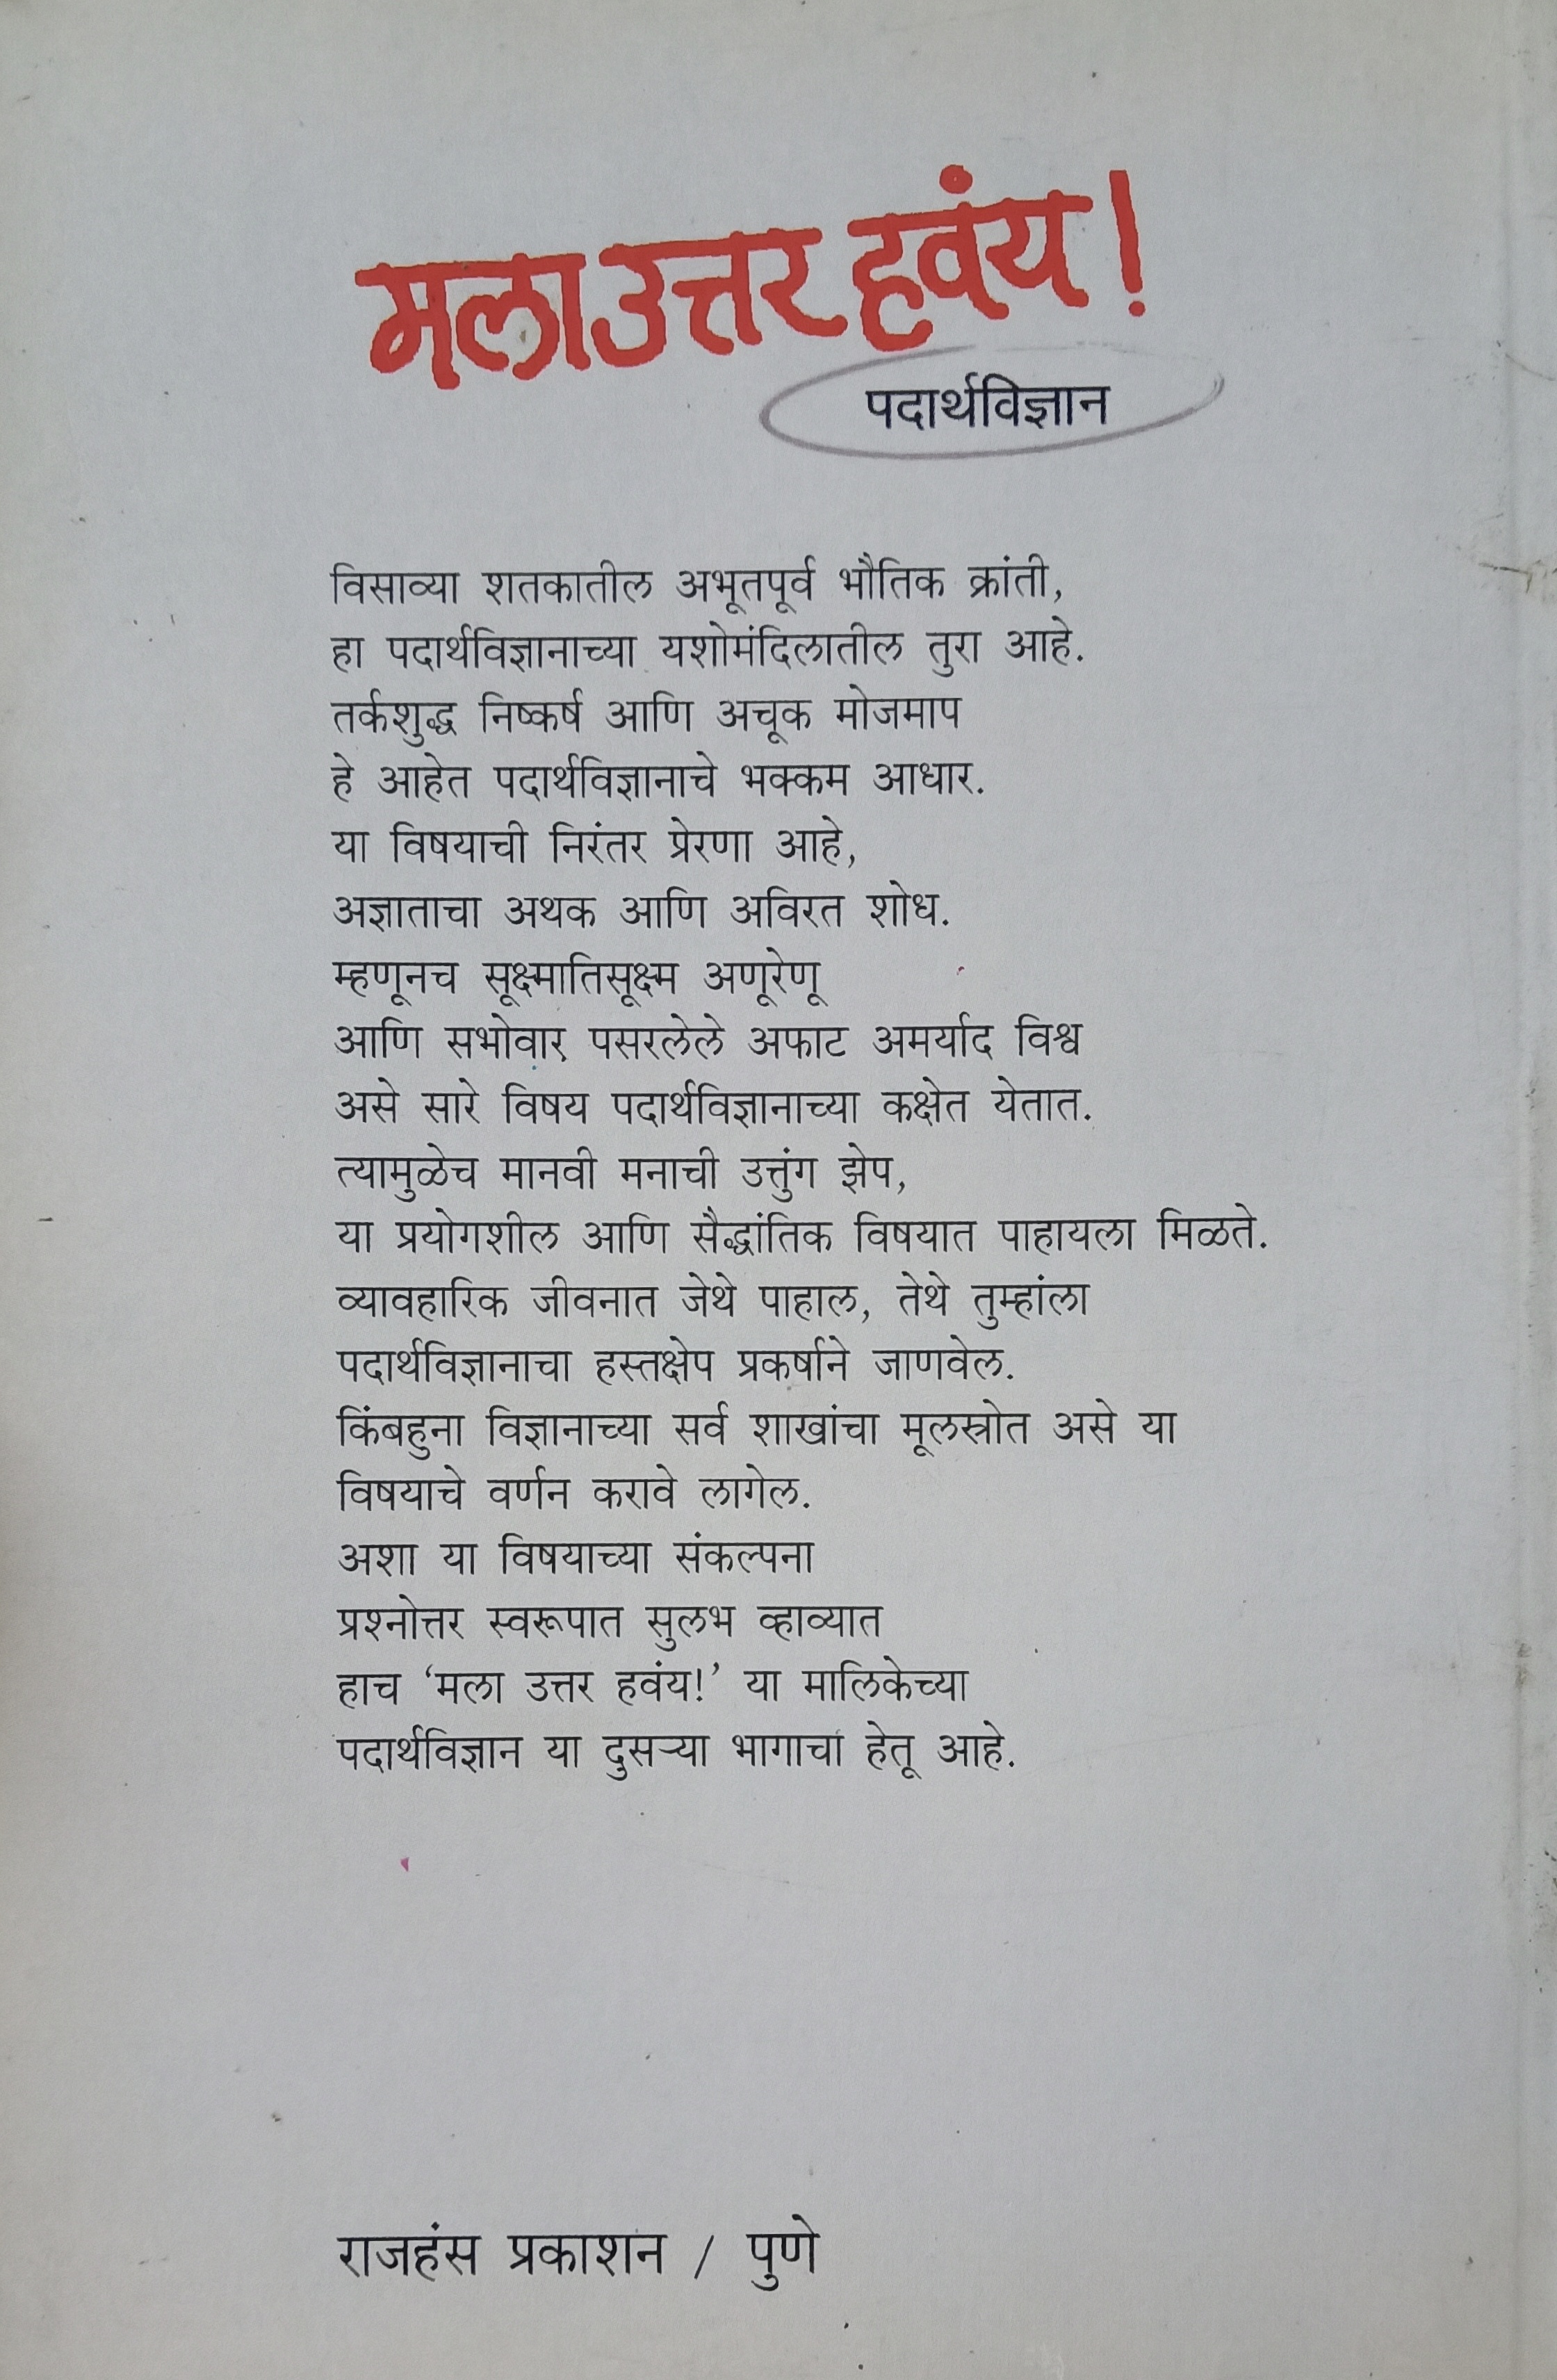 मला उत्तर हवंय!
पदार्थविज्ञान
विसाव्या शतकातील अभूतपूर्व भौतिक क्रांती,
हा पदार्थविज्ञानाच्या यशोमंदिलातील तुरा आहे.
तर्कशुद्ध निष्कर्ष आणि अचूक मोजमाप
हे आहेत पदार्थविज्ञानाचे भक्कम आधार.
या विषयाची निरंतर प्रेरणा आहे,
अज्ञाताचा अथक आणि अविरत शोध.
म्हणूनच सूक्ष्मातिसूक्ष्म अणूरेणू
आणि सभोवार पसरलेले अफाट अमर्याद विश्व
असे सारे विषय पदार्थविज्ञानाच्या कक्षेत येतात.
त्यामुळेच मानवी मनाची उत्तुंग झेप,
या प्रयोगशील आणि सैद्धांतिक विषयात पाहायला मिळते.
व्यावहारिक जीवनात जेथे पाहाल, तेथे तुम्हांला
पदार्थविज्ञानाचा हस्तक्षेप प्रकर्षाने जाणवेल.
किंबहुना विज्ञानाच्या सर्व शाखांचा मूलस्रोत असे या
विषयाचे वर्णन करावे लागेल.
अशा या विषयाच्या संकल्पना
प्रश्नोत्तर स्वरूपात सुलभ व्हाव्यात
हाच ‘मला उत्तर हवंय!’ या मालिकेच्या
पदार्थविज्ञान या दुसऱ्या भागाचा हेतू आहे.
राजहंस प्रकाशन / पुणे